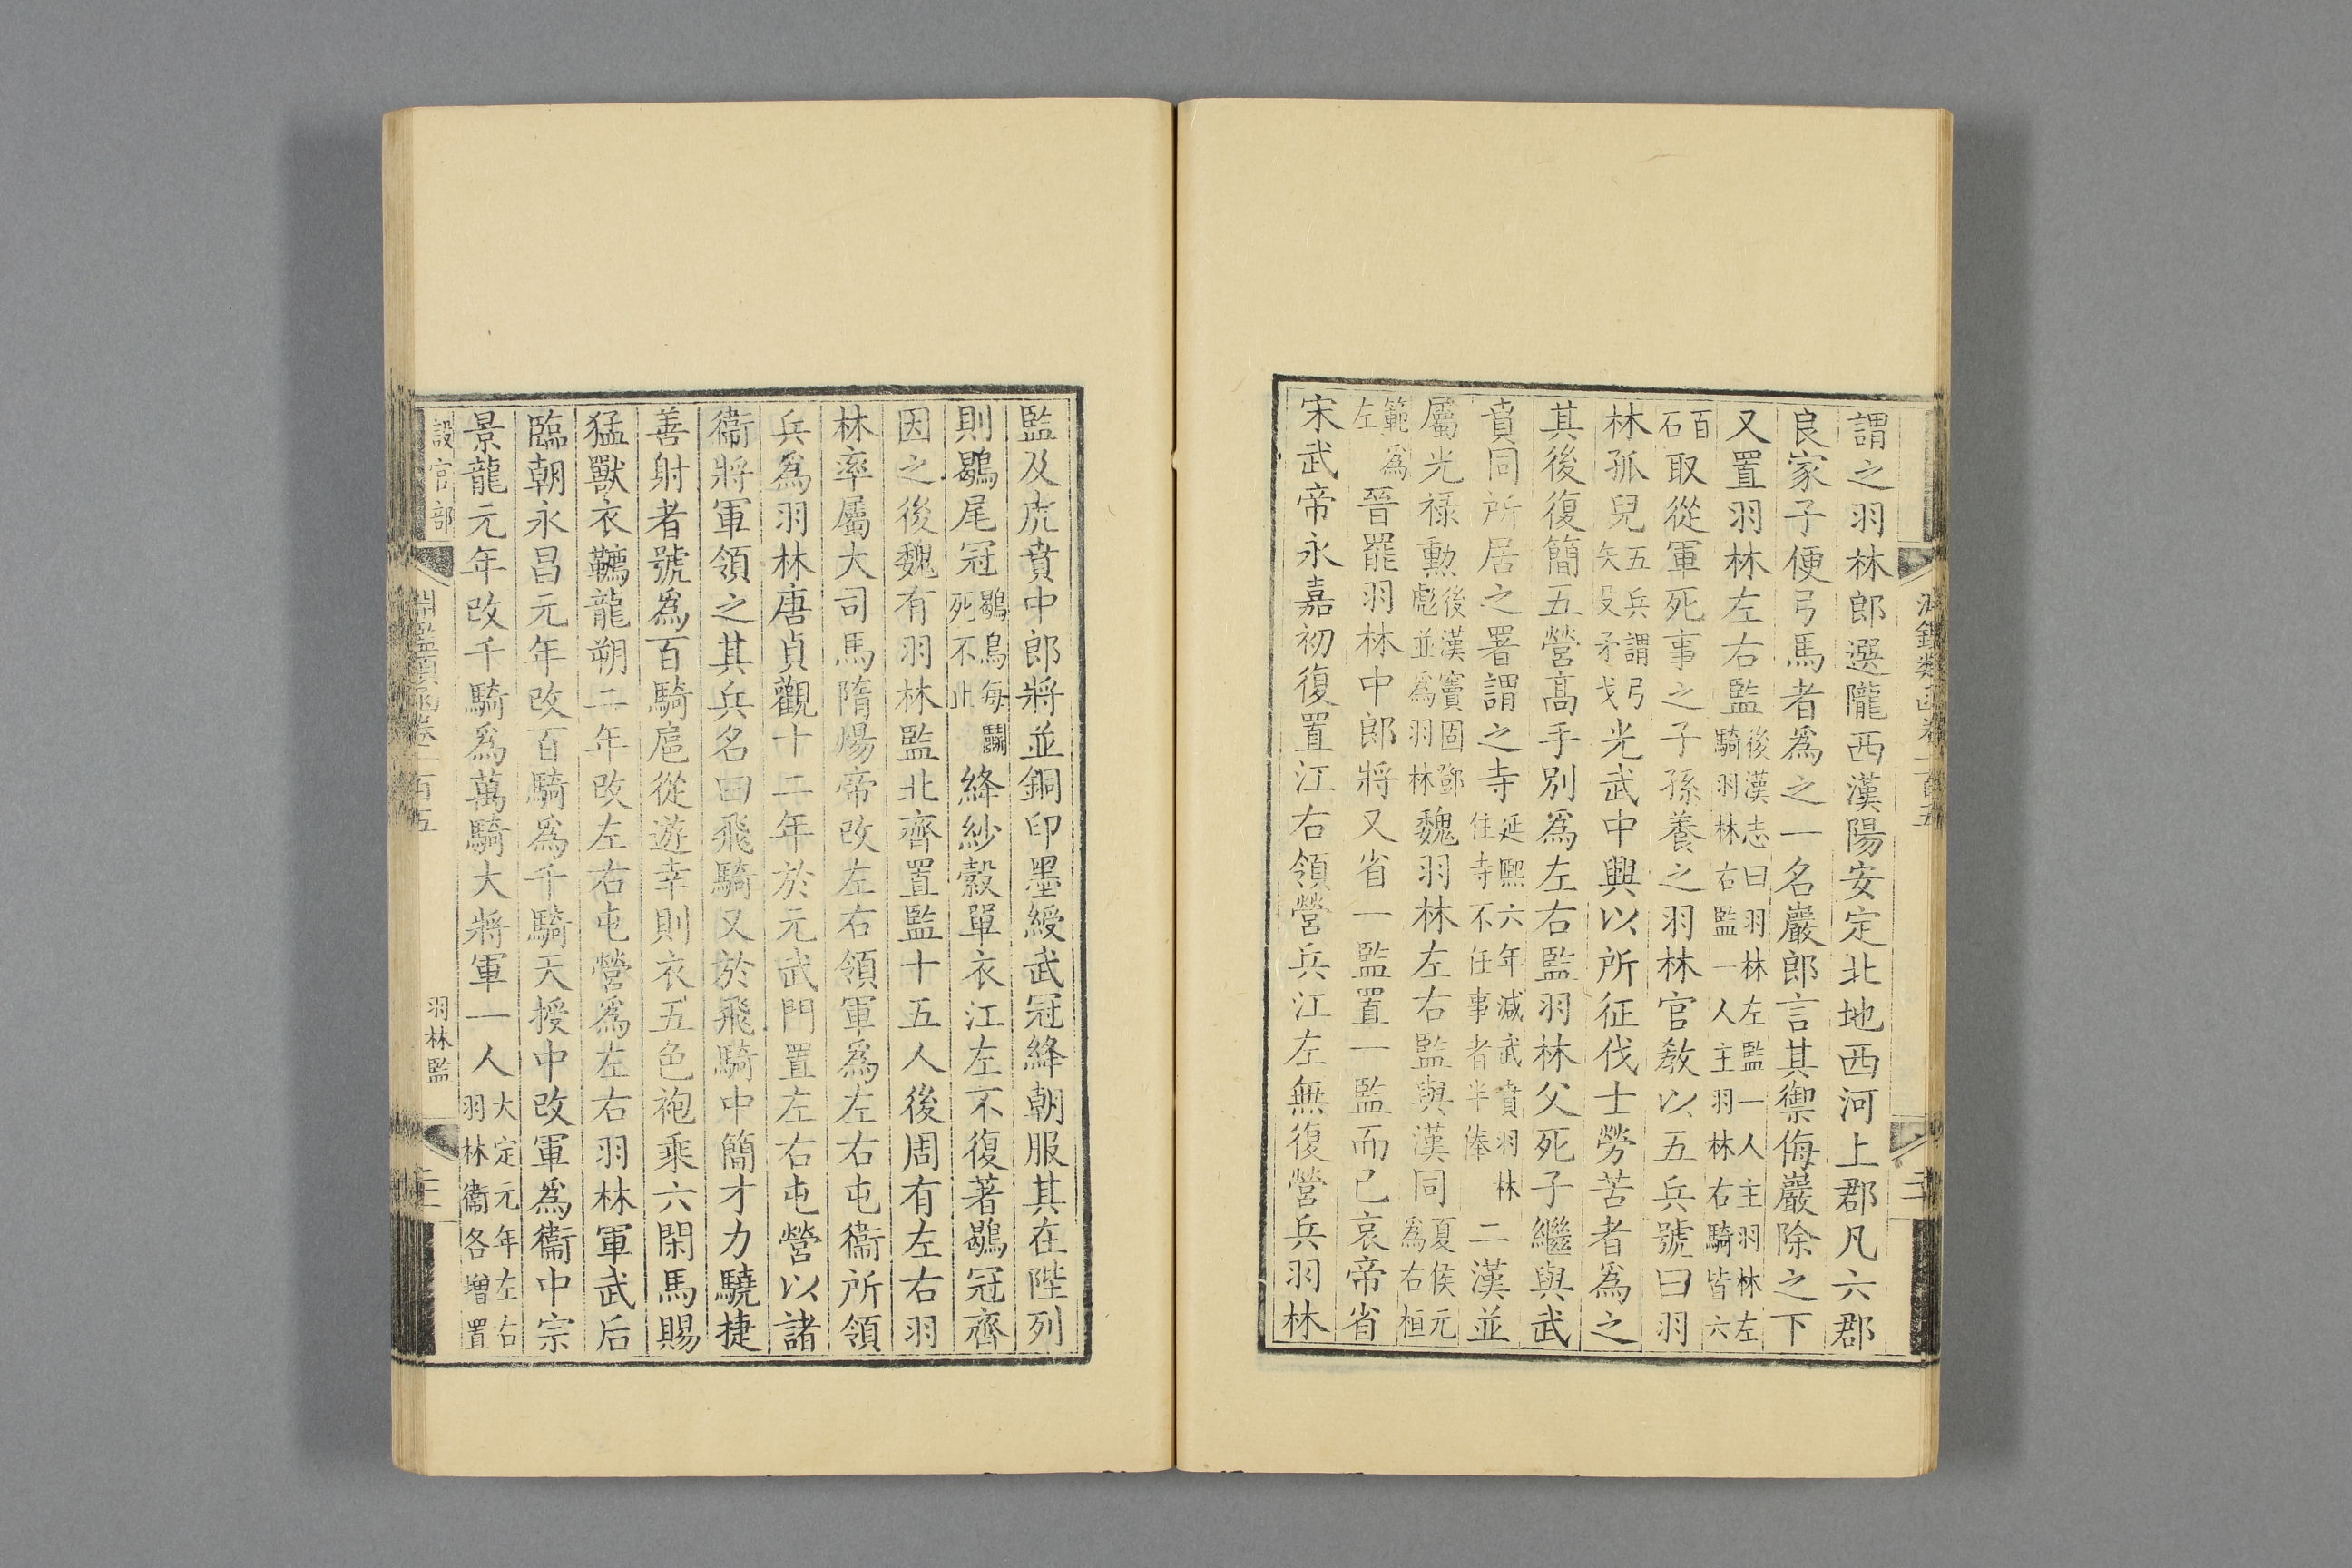 謂之羽林郎選隴西漢陽安定北地西河上郡凡六郡
良家子便弓馬者爲之一名巖郎言其禦侮巖除之下
又置羽林左右監後漢志曰羽林左監一人主羽林左騎羽林右監一人主羽林右騎皆六
百石取從軍死事之子孫養之羽林官敎以五兵號曰羽
林孤兒五兵謂弓矢殳矛戈光武中興以所征伐士勞苦者爲之
其後復簡五營高手別爲左右監羽林父死子繼與武
賁同所居之署謂之寺延熙六年減武賁羽林住寺不任事者半俸二漢並
屬光祿勳後漢竇固鄧彪並爲羽林魏羽林左右監與漢同夏侯元爲右桓
範爲左晉罷羽林中郎將又省一監置一監而已哀帝省
宋武帝永嘉初復置江右領營兵江左無復營兵羽林
監及虎賁中郎將並銅印墨綬武冠絳朝服其在陛列
則鶡尾冠鶡鳥每鬬死不止絳紗縠單衣江左不復著鶡冠齊
因之後魏有羽林監北齊置監十五人後周有左右羽
林率屬大司馬隋煬帝改左右領軍爲左右屯衞所領
兵爲羽林唐貞觀十二年於元武門置左右屯營以諸
衞將軍領之其兵名曰飛騎又於飛騎中簡才力驍捷
善射者號爲百騎扈從遊幸則衣五色袍乘六閑馬賜
猛獸衣韉龍朔二年改左右屯營爲左右羽林軍武后
臨朝永昌元年改百騎爲千騎天授中改軍爲衞中宗
景龍元年改千騎爲萬騎大將軍一人大定元年左右羽林衞各增置
設官部 淵鑑類函卷一百五 羽林監 三